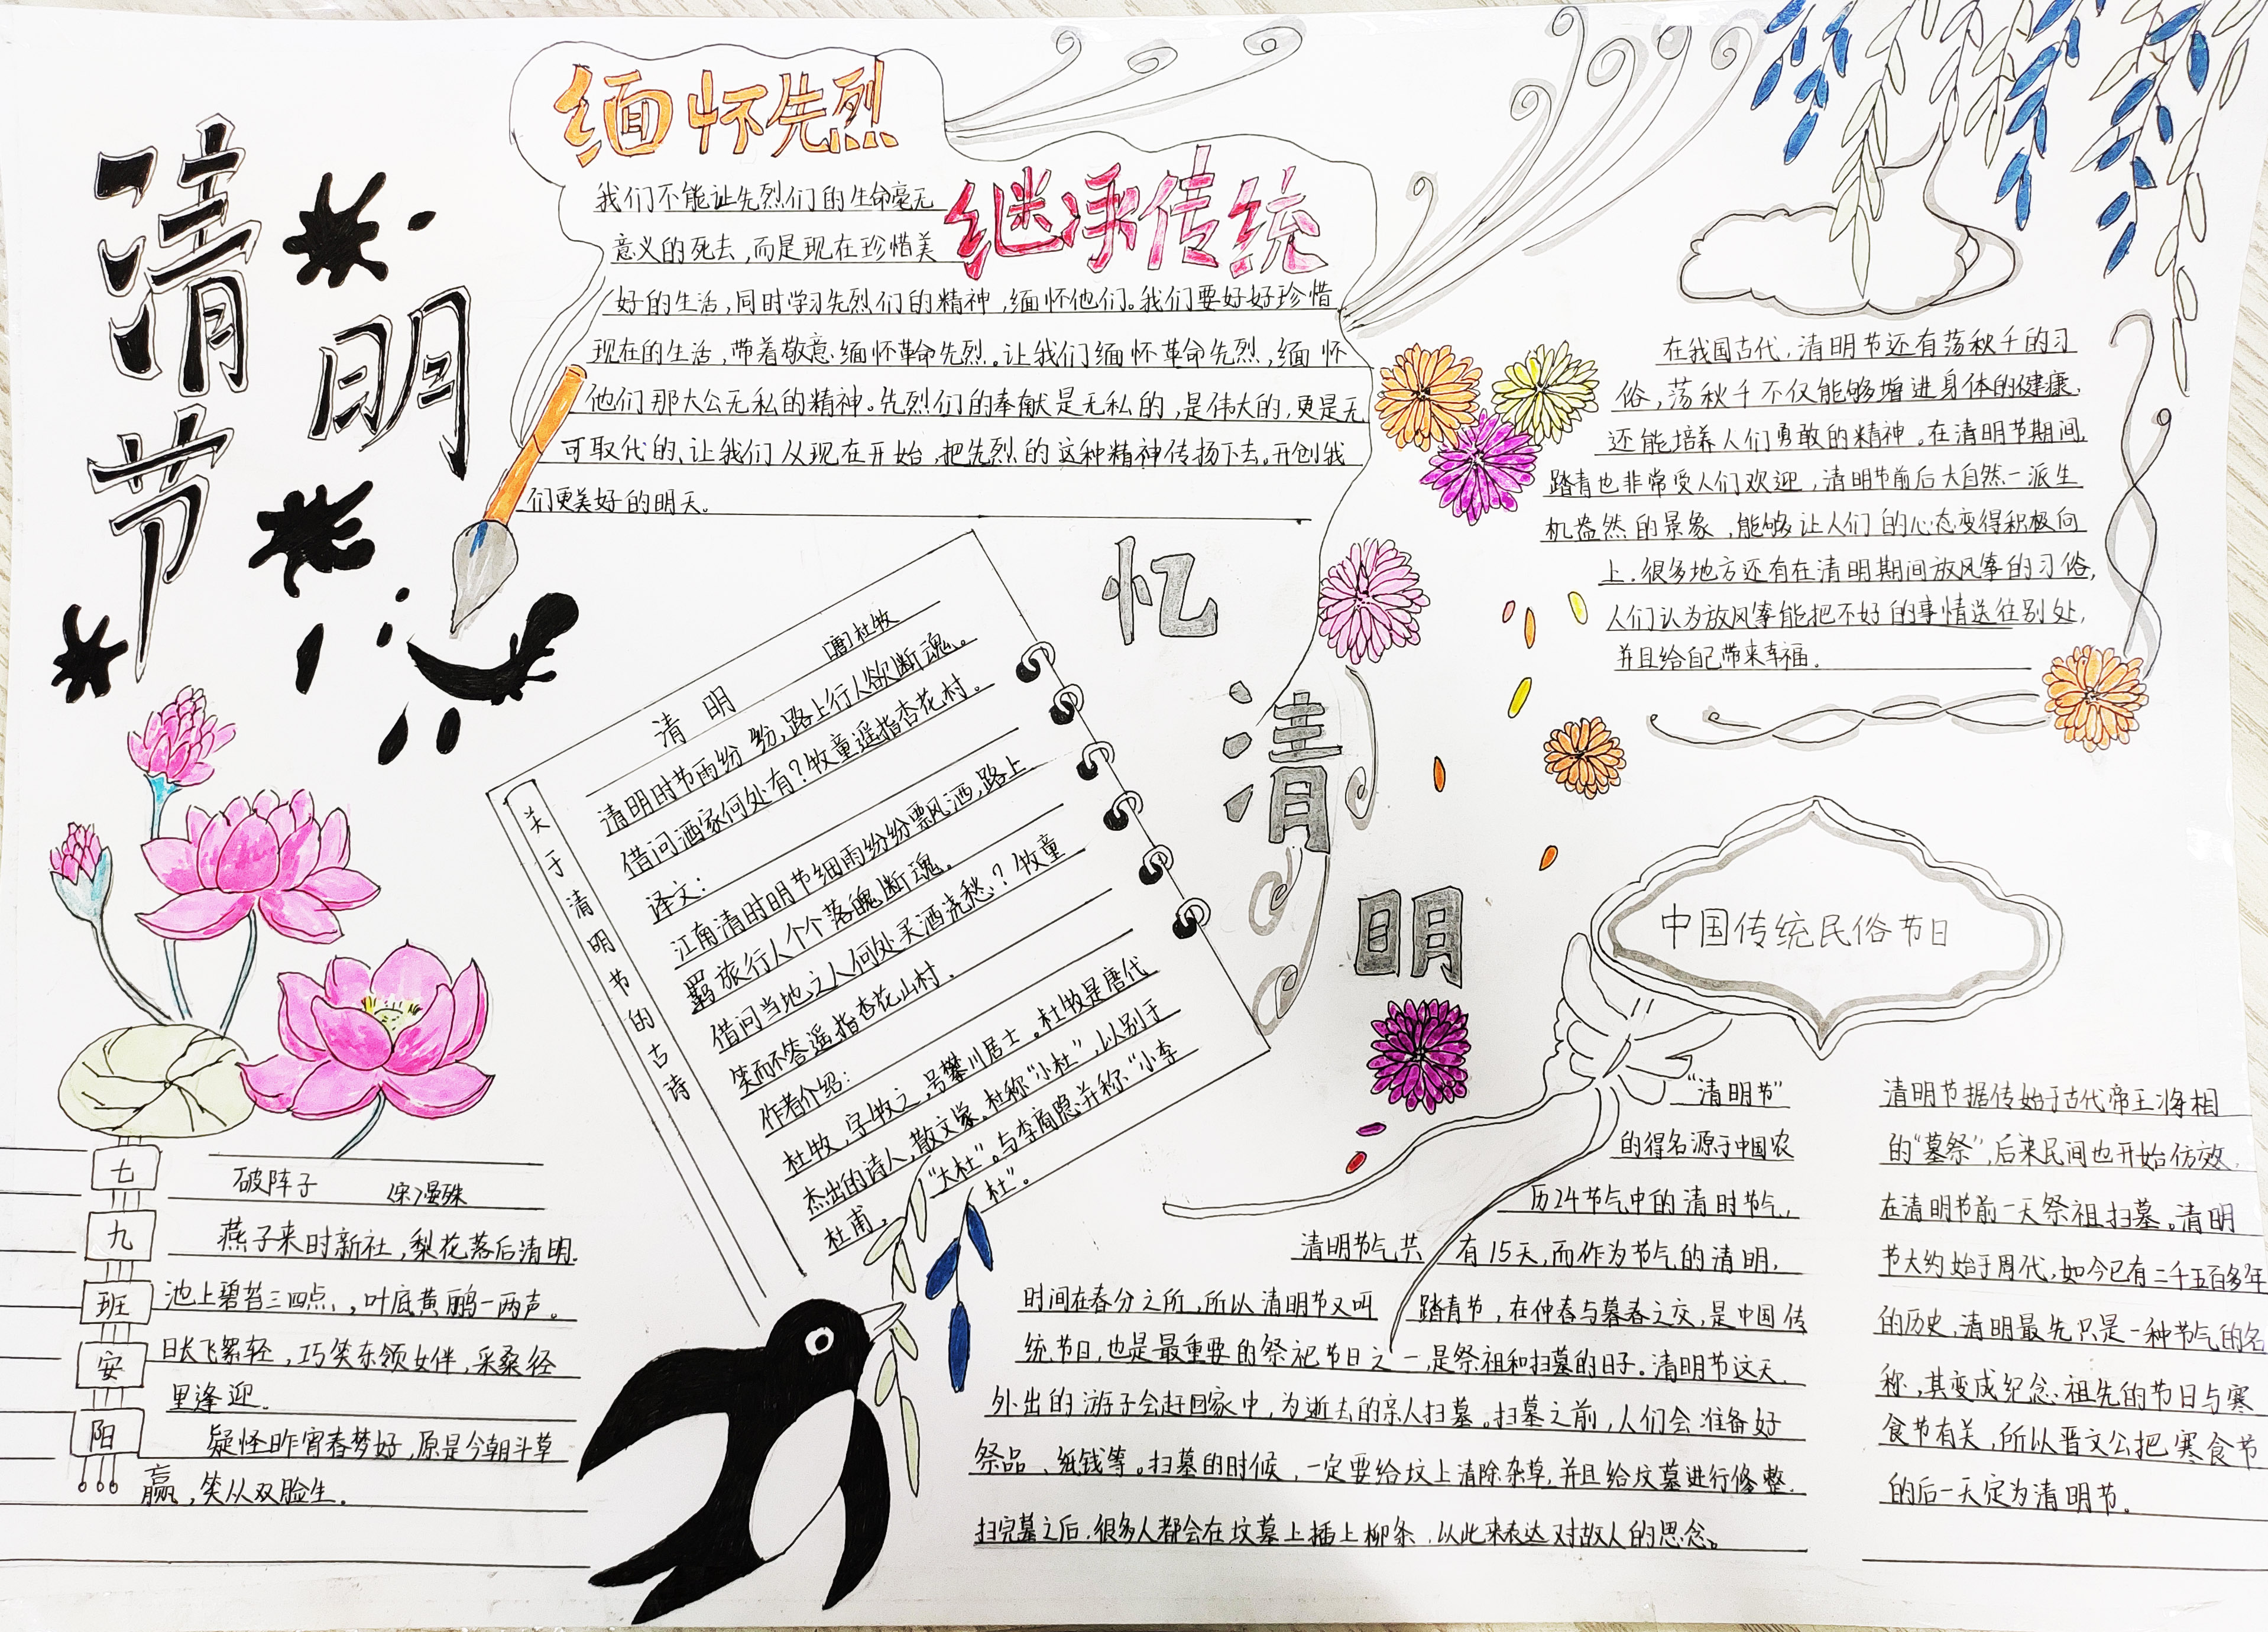 清明节
缅怀先烈
继承传统
我们不能让先烈们的生命毫无
意义的死去，而是现在珍惜美
好的生活，同时学习先烈们的精神，缅怀他们。我们要好好珍惜
现在的生活，带着敬意缅怀革命先烈。让我们缅怀革命先烈，缅怀
他们那大公无私的精神。先烈们的奉献是无私的，是伟大的，更是无
可取代的、让我们从现在开始，把先烈的这种精神传扬下去。开创我
们更美好的明天。
忆清明
关于清明节的古诗
清明
[唐]杜牧
清明时节雨纷纷，路上行人欲断魂。
借问酒家何处有？牧童遥指杏花村。
译文：
江南清时明节细雨纷纷飘风洒，路上
羁旅行人个个落魄断魂。
借问当地之人何处买酒浇愁？牧童
笑而不答遥指杏花山村．
作者介绍：
杜牧，字牧之，号攀川居士。杜牧是唐代
杰出的诗人，散文家。杜称“小杜”，以别于
杜甫，“大杜”。与李商隐并称“小李
杜”。
在我国古代，清明节还有荡秋千的习
俗，荡秋千不仅能够增进身体的健康．
还能培养人们勇敢的精神。在清明节期间，
踏青也非常受人们欢迎，清明节前后大自然一派生
机盎然的景象，能够让人们的心态变得积极向
上．很多地方还有在清明期间放风筝的习俗，
人们认为放风筝能把不好的事情送往别处，
并且给自己带来幸福．
中国传统民俗节日
“清明节”
的得名源于中国农
历24节气中的清时节气，
清明节气共有15天，而作为节气的清明，
时间在春分之所，所以清明节又叫踏青节，在仲春与暮春之交，是中国传
统节日，也是最重要的祭祀节日之一，是祭祖和扫墓的日子。清明节这天．
外出的游子会赶回家中，为逝去的亲人扫墓。扫墓之前，人们会准备好
祭品、纸钱等。扫墓的时候，一定要给坟上清除杂草，并且给坟墓进行修整．
扫完墓之后，很多人都会在坟墓上插上柳条．以此来表达对故人的思念。
清明节据传始于古代帝王将相
的“墓祭”，后来民间也开始仿效．
在清明节前一天祭祖扫墓。清明
节大约始于周代，如今已有二千五百多年
的历史，清明最先只是一种节气的名
称，其变成纪念祖先的节日与寒
食节有关，所以晋文公把寒食节
的后一天定为清明节。
七九班安阳
破阵子
[宋]晏殊
燕子来时新社，梨花落后清明．
池上碧苔三四点，叶底黄鹂一两声。
日长飞絮轻，巧笑东领女伴，采桑径
里逢迎．
疑怪昨宵春梦好，原是今朝斗草
赢，笑从双脸生．